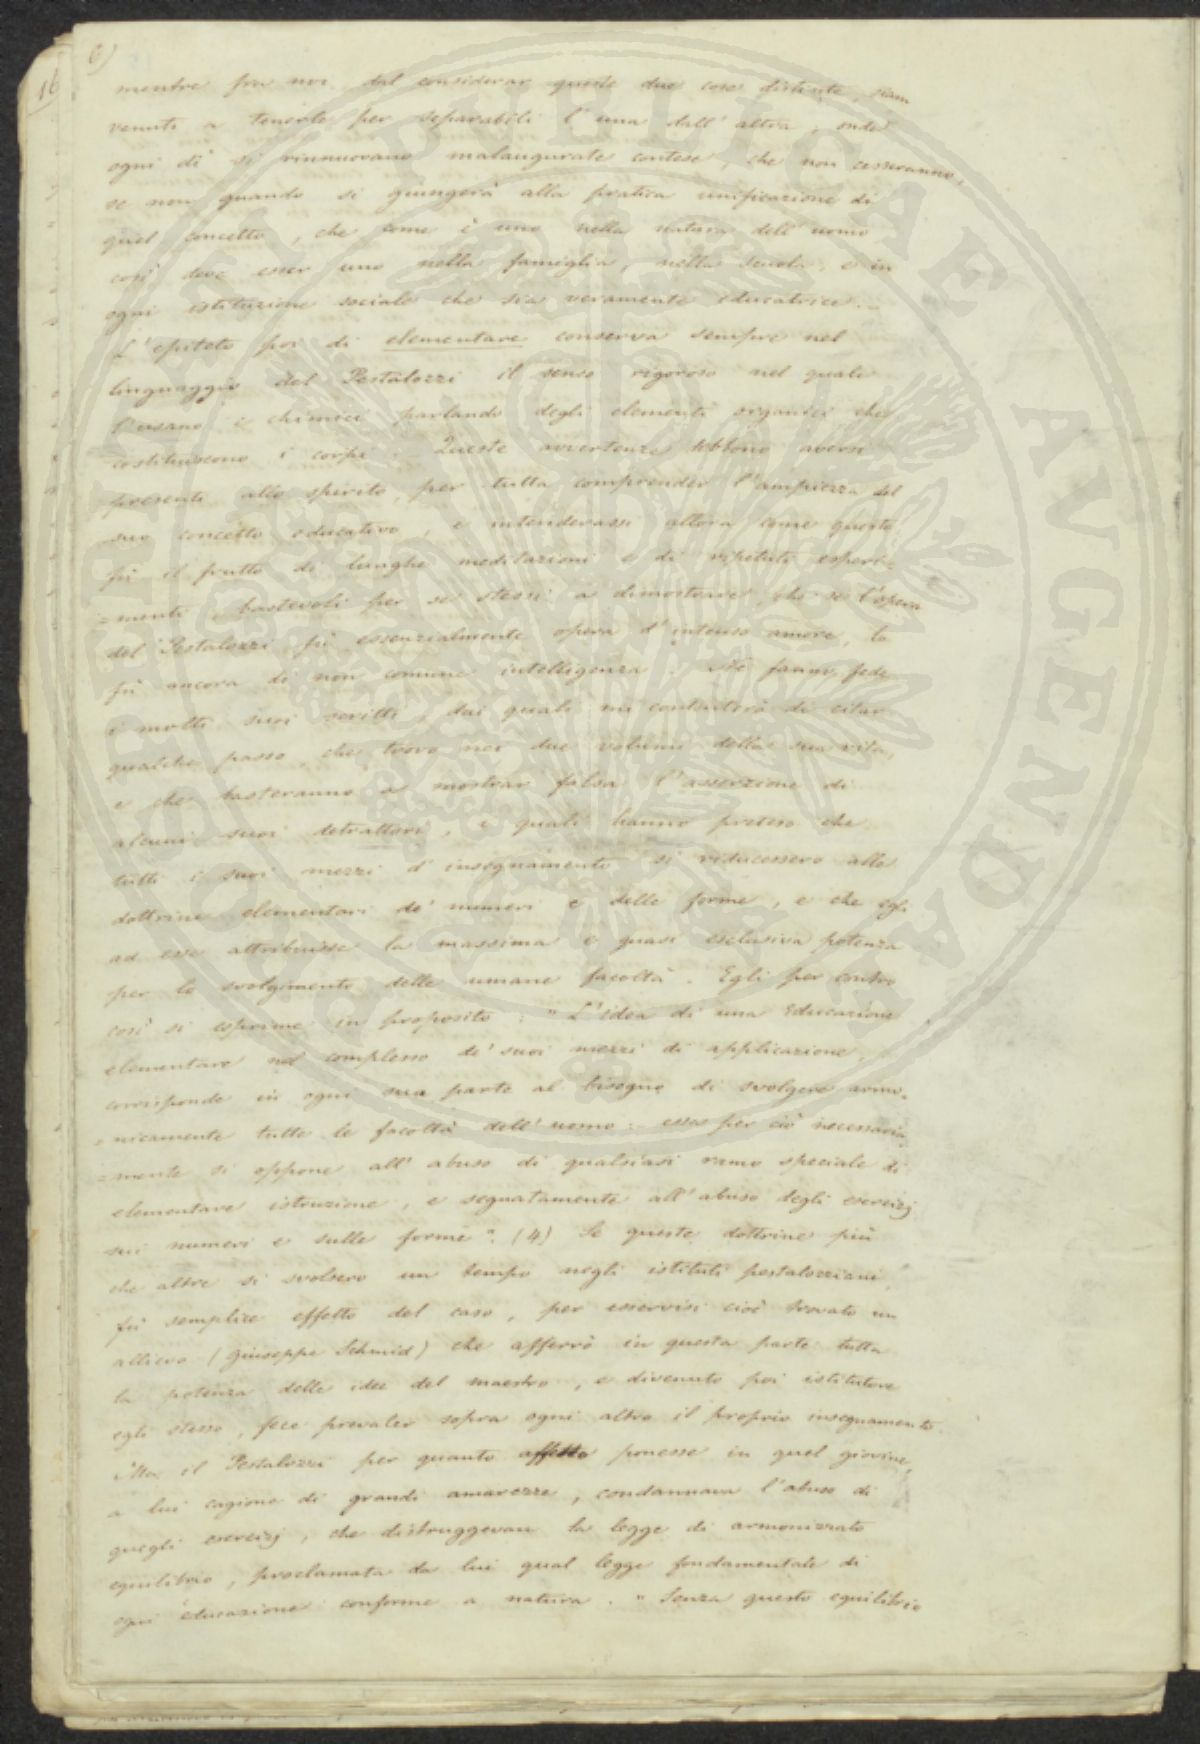 6)
16
mentre fra noi dal considerar queste due cose distinte, siam
venuti a tenerle per separabili l'una dall'altra, onde
ogni dì si rinnuovano malaugurate contese, che non cesseranno,
se non quando si giungerà alla pratica unificazione di
quel concetto, che come è uno nella natura dell'uomo
così deve esser uno nella famiglia, nella scuola, e in
ogni istituzione sociale che sia veramente educatrice.
L'epiteto poi di elementare conserva sempre nel
linguaggio del Pestalozzi il senso rigoroso nel quale
l'usano i chimici parlando degli elementi organici che
costituiscono i corpi. Queste avvertenze debbono aversi
presenti allo spirito, per tutta comprender l'ampiezza del
suo concetto educativo, e intenderassi allora come questo
fu il frutto di lunghe meditazioni e di ripetuti esperi=
=menti, bastevoli per se stessi a dimostrare, che se l'opera
del Pestalozzi fu essenzialmente opera d'intenso amore, lo
fu ancora di non comune intelligenza. Ne fanno fede
i molti suoi scritti, dai quali mi contenterò di citar
qualche passo, che trovo nei due volumi della sua vita,
e che basteranno a mostrar falsa l'asserzione di
alcuni suoi detrattori, i quali hanno preteso che
tutti i suoi mezzi d'insegnamento si riducessero alle
dottrine elementari de' numeri e delle forme, e che egli
ad esse attribuisse la massima e quasi esclusiva potenza
per lo svolgimento delle umane facoltà. Egli per contro
così si esprime in proposito: "L'idea di una Educazione
elementare nel complesso de' suoi mezzi di applicazione,
corrisponde in ogni sua parte al bisogno di svolgere armo=
=nicamente tutte le facoltà dell'uomo: essa per ciò necessaria
=mente si oppone all'abuso di qualsiasi ramo speciale di
elementare istruzione, e segnatamente all'abuso degli esercizj
sui numeri e sulle forme". (4) Se queste dottrine più
che altre si svolsero un tempo negli istituti pestalozziani,
fu semplice effetto del caso, per esservisi cioè trovato un
allievo (Giuseppe Schmid) che afferrò in questa parte tutta
la potenza delle idee del maestro, e divenuto poi istitutore
egli stesso, fece prevaler sopra ogni altro il proprio insegnamento.
Ma il Pestalozzi per quanto affetto ponesse in quel giovine,
a lui cagione di grandi amarezze, condannava l'abuso di
quegli esercizj, che distruggevan la legge di armonizzato
equilibrio, proclamata da lui qual legge fondamentale di
ogni educazione conforme a natura. "Senza questo equilibrio